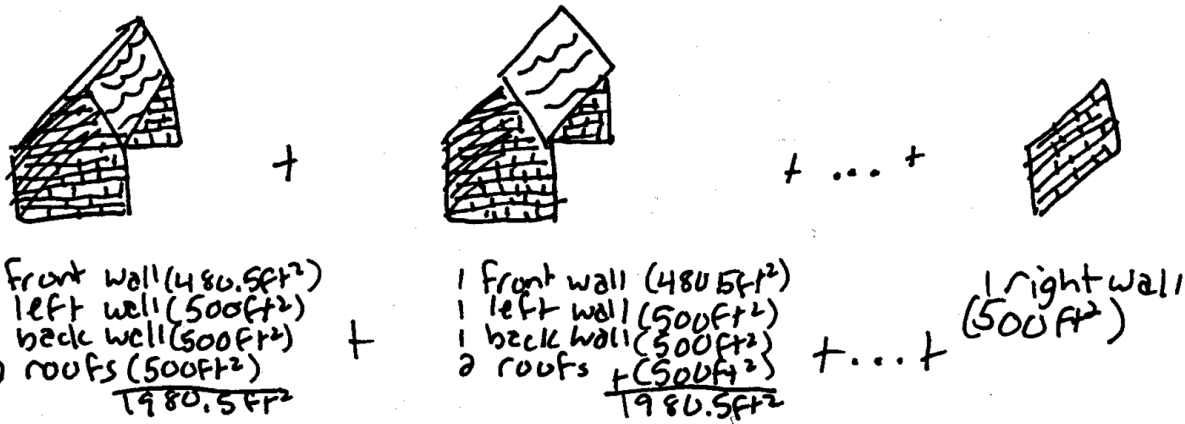 + + ... +
front wall (480.5ft²)
left wall (500ft²)
back wall (500ft²)
2 roofs (500ft²)
1980.5ft²
+
1 front wall (480.5ft²)
1 left wall (500ft²)
1 back wall (500ft²)
2 roofs +(500ft²)
1980.5ft²
+...+
1 right wall
(500ft²)